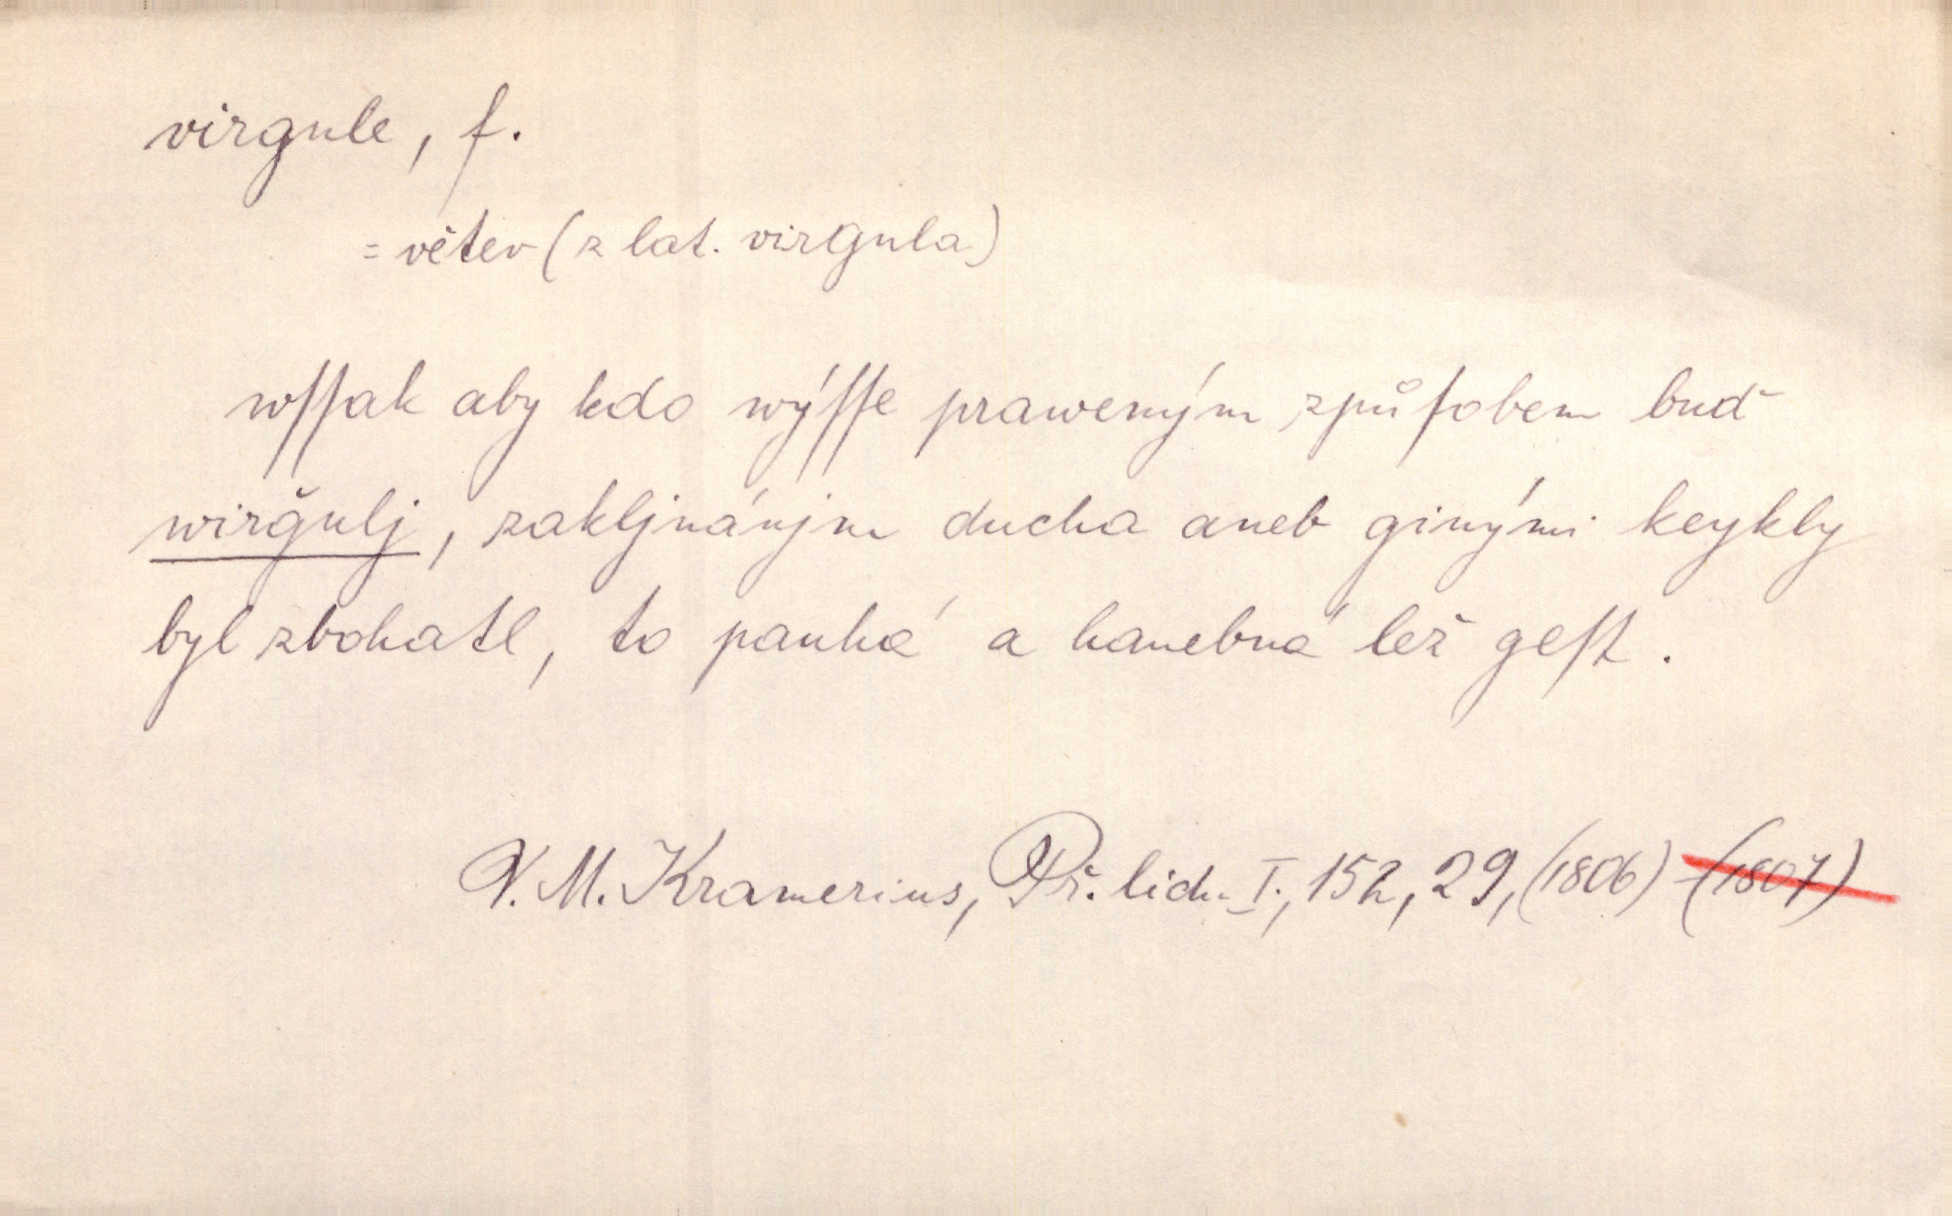 virgule, f.
= větev (z lat. virgula)
wſſak aby kdo wýſſe praweným způſobem buď
wirǧulj, zakljnánjm ducha aneb ginými keykly
byl zbohatl, to pauhá a hanebná lež geſt.
V. M. Kramerius, Př. lid. I., 152, 29, (1806) (1807)